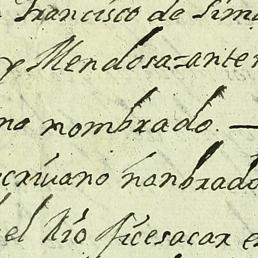 Francisco de Sima
y Mendosa=ante
no nombrado. —
scriuano nonbrado
el Rio fice sacar e